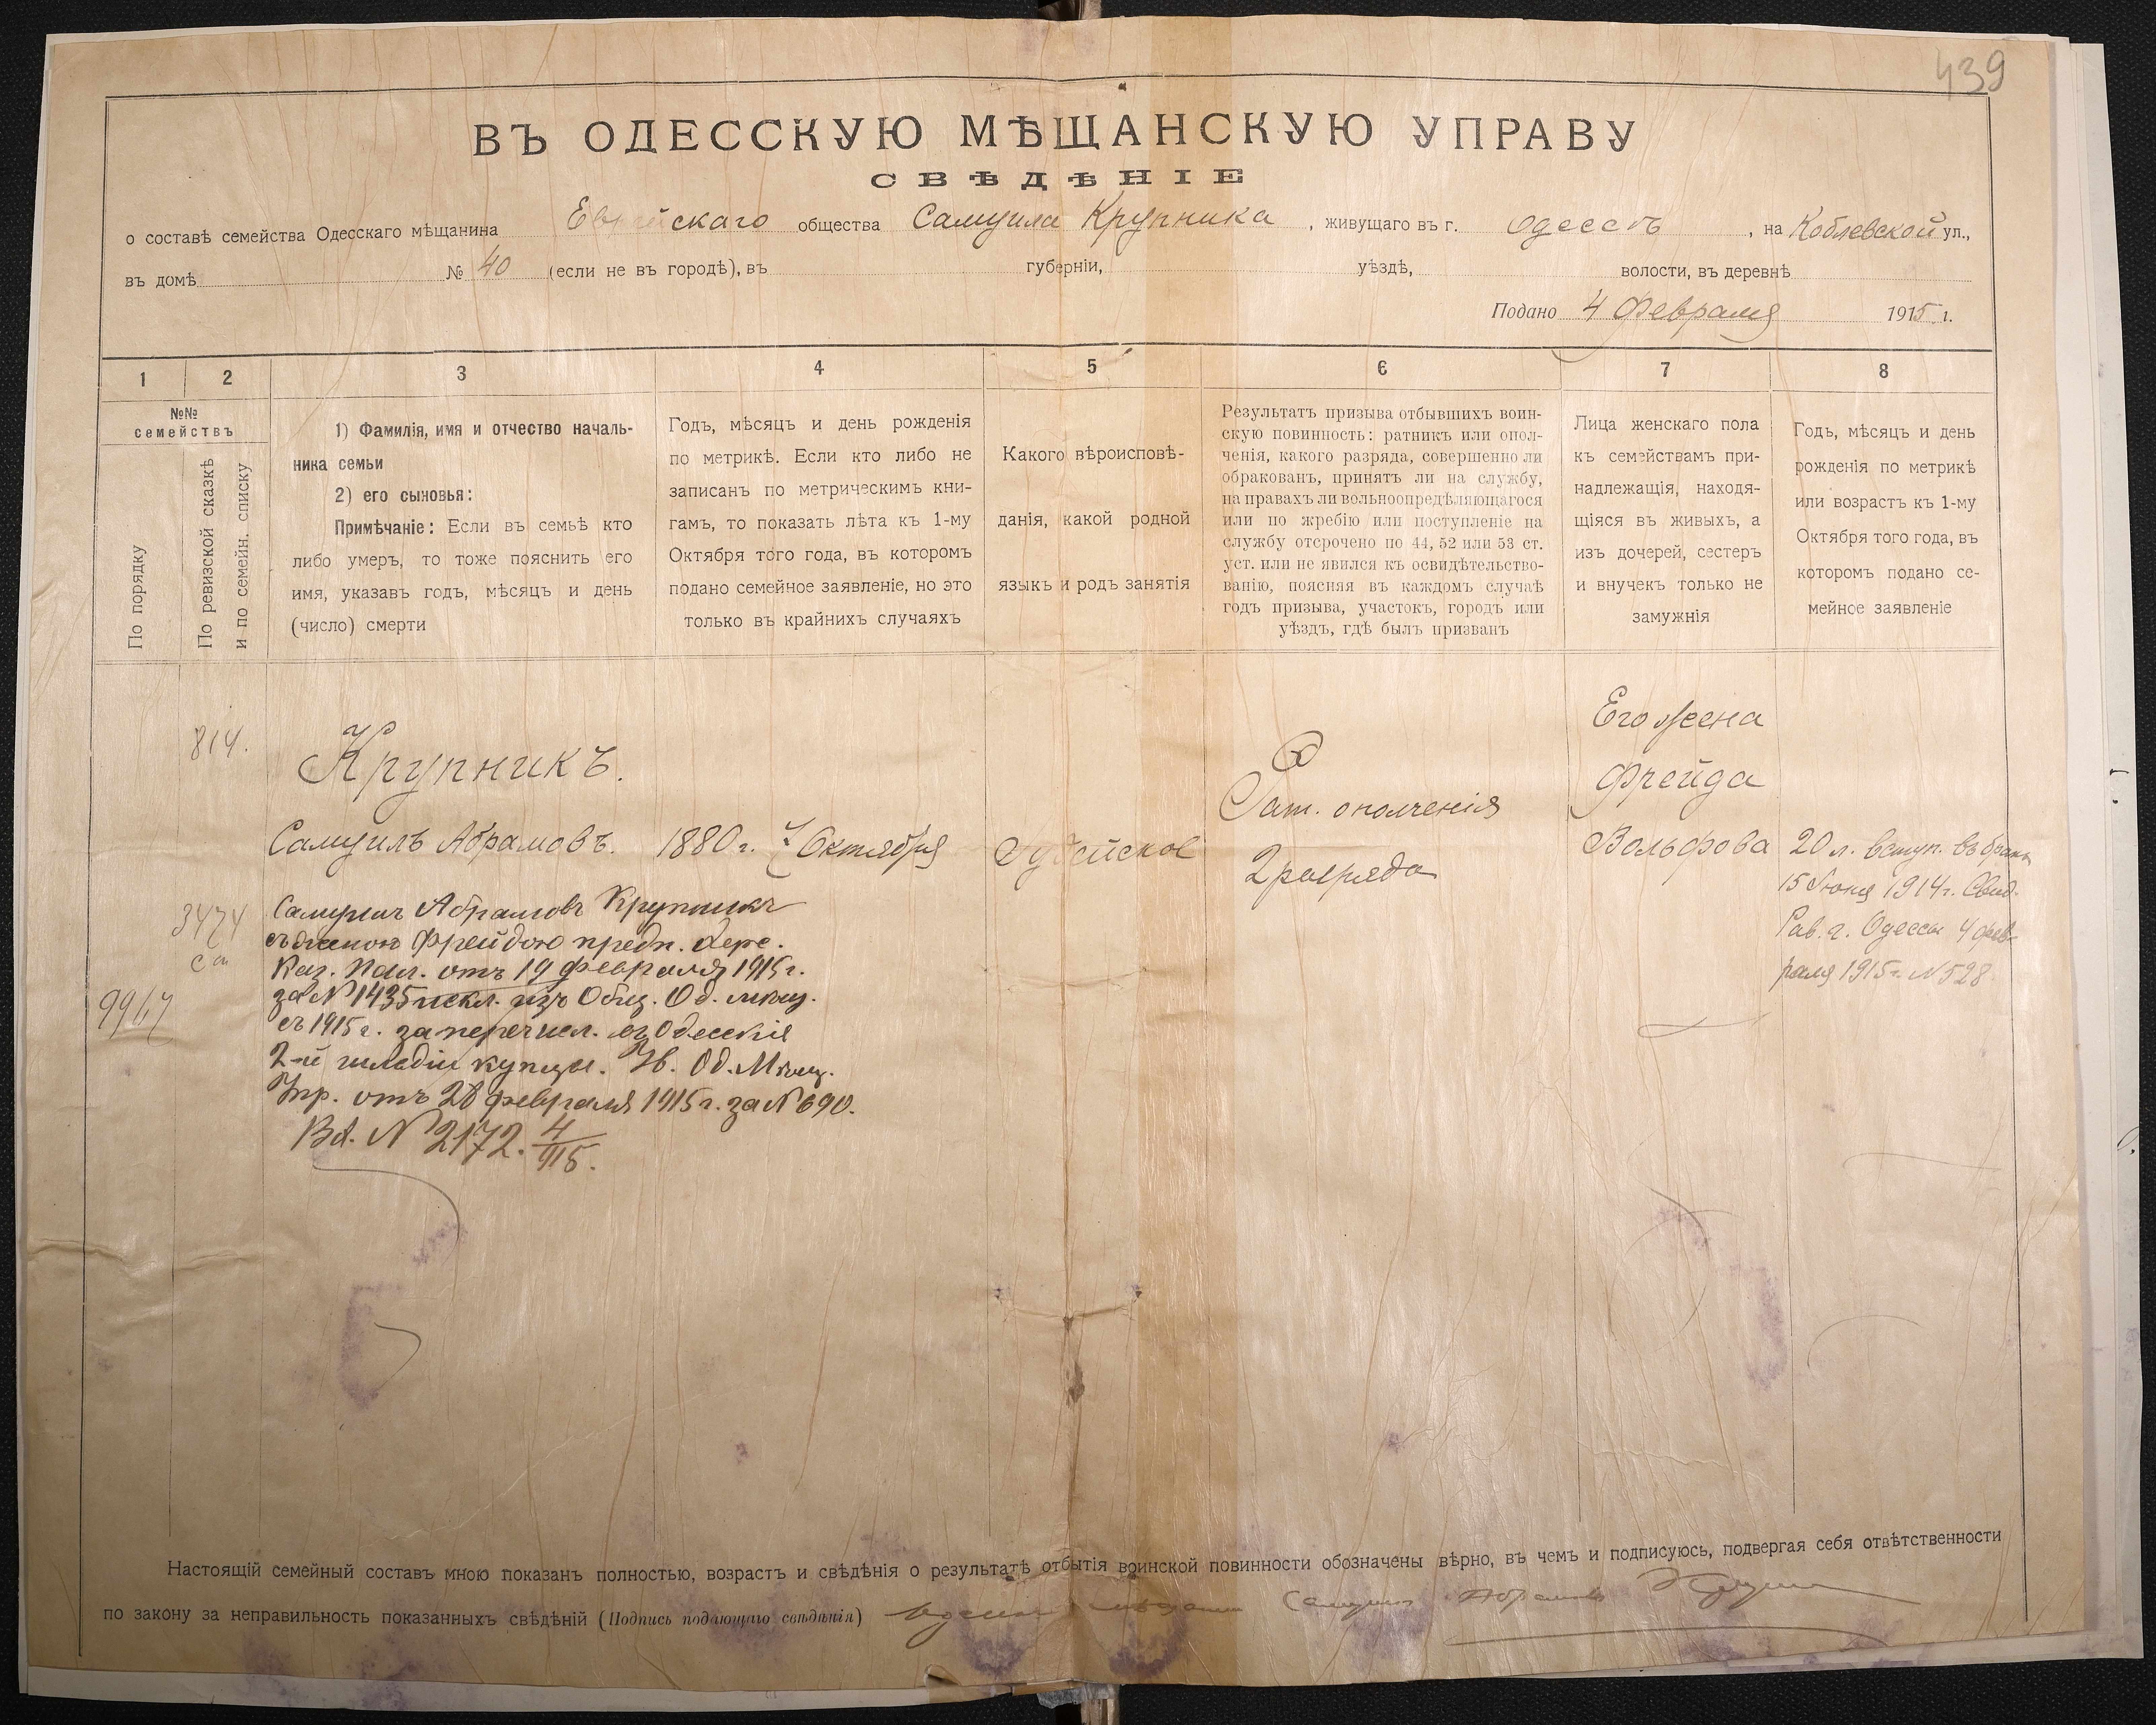 439
ВЪ ОДЕССКУЮ МѢЩАНСКУЮ УПРАВУ
СВѢДѢНІЕ
о составѣ семейства Одесскаго мѣщанина Еврейскаго общества Самуила Крупника, живущаго въ г. Одессѣ, на Коблевской ул.,
въ домѣ № 40 (если не въ городѣ), въ губерніи, уѣздѣ, волости, въ деревнѣ
Подано 4 Февраля 1915 г.
1 2 3 4 5 6 7 8
№№
семействъ
По порядку
По ревизской сказкѣ
и по семейн. списку
1) Фамилія, имя и отчество началь-
ника семьи
2) его сыновья:
Примѣчаніе: Если въ семьѣ кто
либо умеръ, то тоже пояснить его
имя, указавъ годъ, мѣсяцъ и день
(число) смерти
Годъ, мѣсяцъ и день рожденія
по метрикѣ. Если кто либо не
записанъ по метрическимъ кни-
гамъ, то показать лѣта къ 1-му
Октября того года, въ которомъ
подано семейное заявленіе, но это
только въ крайнихъ случаяхъ
Какого вѣроисповѣ-
данія, какой родной
языкъ и родъ занятія
Результатъ призыва отбывшихъ воин-
скую повинность: ратникъ или опол-
ченія, какого разряда, совершенно ли
обракованъ, принятъ ли на службу,
на правахъ ли вольноопредѣляющагося
или по жребію или поступленіе на
службу отсрочено по 44, 52 или 53 ст.
уст. или не явился къ освидѣтельство-
ванію, поясняя въ каждомъ случаѣ
годъ призыва, участокъ, городъ или
уѣздъ, гдѣ былъ призванъ
Лица женскаго пола
къ семействамъ при-
надлежащія, находя-
щіяся въ живыхъ, а
изъ дочерей, сестеръ
и внучекъ только не
замужнія
Годъ, мѣсяцъ и день
рожденія по метрикѣ
или возрастъ къ 1-му
Октября того года, въ
которомъ подано се-
мейное заявленіе
814.
Крупникъ.
Самуилъ Абрамовъ. 1880 г. Октября
Іудейское
Рат. ополченія
2 разряда
Его жена
Фрейда
Вольфова
20 л. вступ. въ бракъ
15 Іюня 1914 г. Свид.
Рав. г. Одессы 4 фев-
раля 1915 г. № 528
3474
9967
Самуилъ Абрамовъ Крупникъ
съ женою Фрейдою предп. Хер.
Каз. Пал. отъ 19 февраля 1915 г.
за № 1435 искл. изъ Общ. Од. мѣщ.
съ 1915 г. за перечисл. въ Одесскіе
2-й гильдіи купцы. Ув. Од. Мѣщ.
Упр. отъ 28 февраля 1915 г. за № 690.
Вх. № 2172. 4/915.
Настоящій семейный составъ мною показанъ полностью, возрастъ и свѣдѣнія о результатѣ отбытія воинской повинности обозначены вѣрно, въ чемъ и подписуюсь, подвергая себя отвѣтственности
по закону за неправильность показанныхъ свѣдѣній (Подпись подающаго свѣдѣнія) Самуилъ Абрамовъ Крупникъ